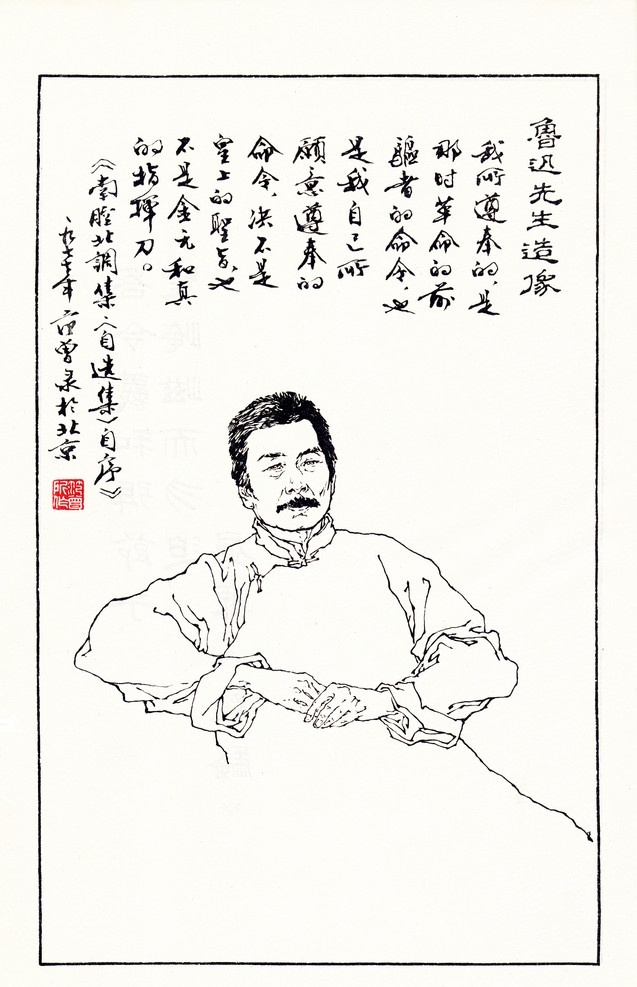 魯迅先生造像
我所遵奉的，是
那时革命的前
驅者的命令，也
是我自己所
願意遵奉的
命令，决不是
皇上的聖旨，也
不是金元和真
的指揮刀。
《南腔北調集〈自選集〉自序》
一九七七年 范曾录於北京